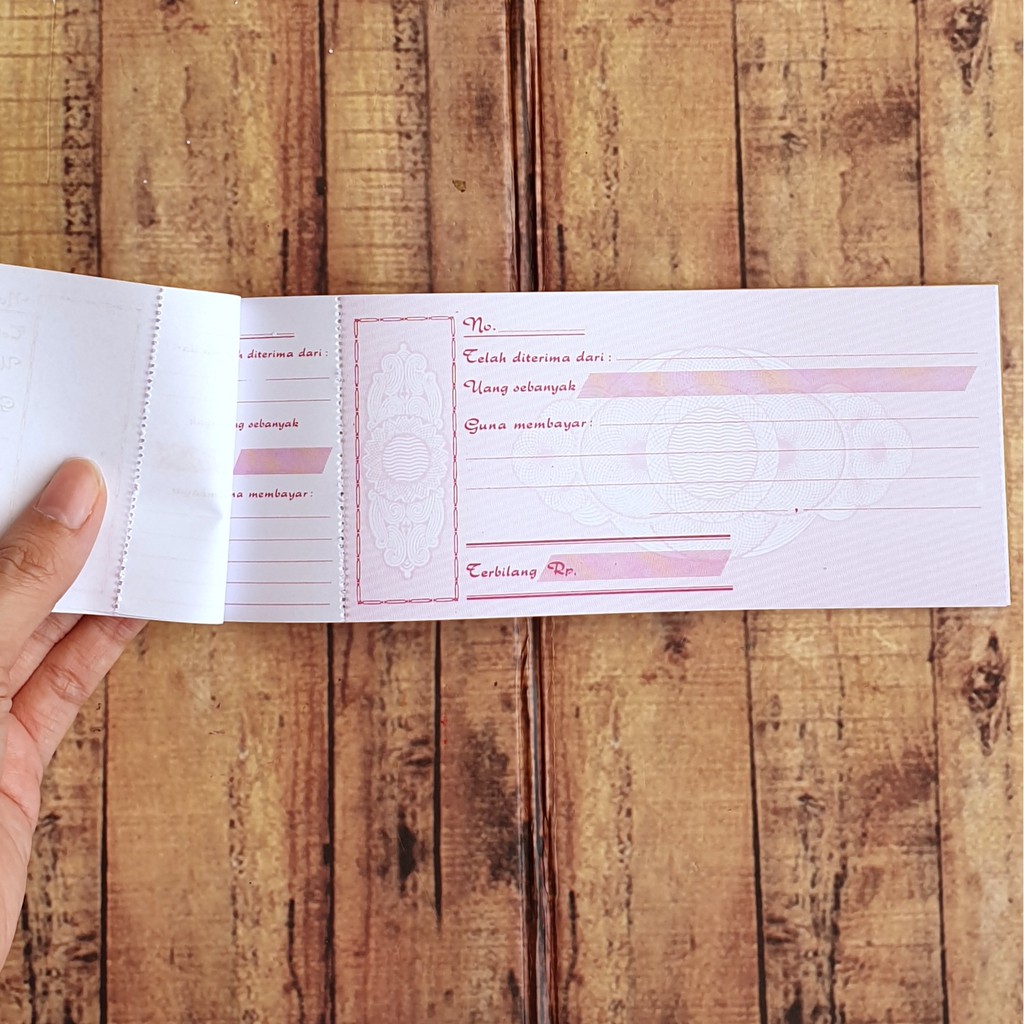 diterima dari :
sebanyak
membayar :
No.
Telah diterima dari :
Uang sebanyak
Guna membayar :
Terbilang Rp.